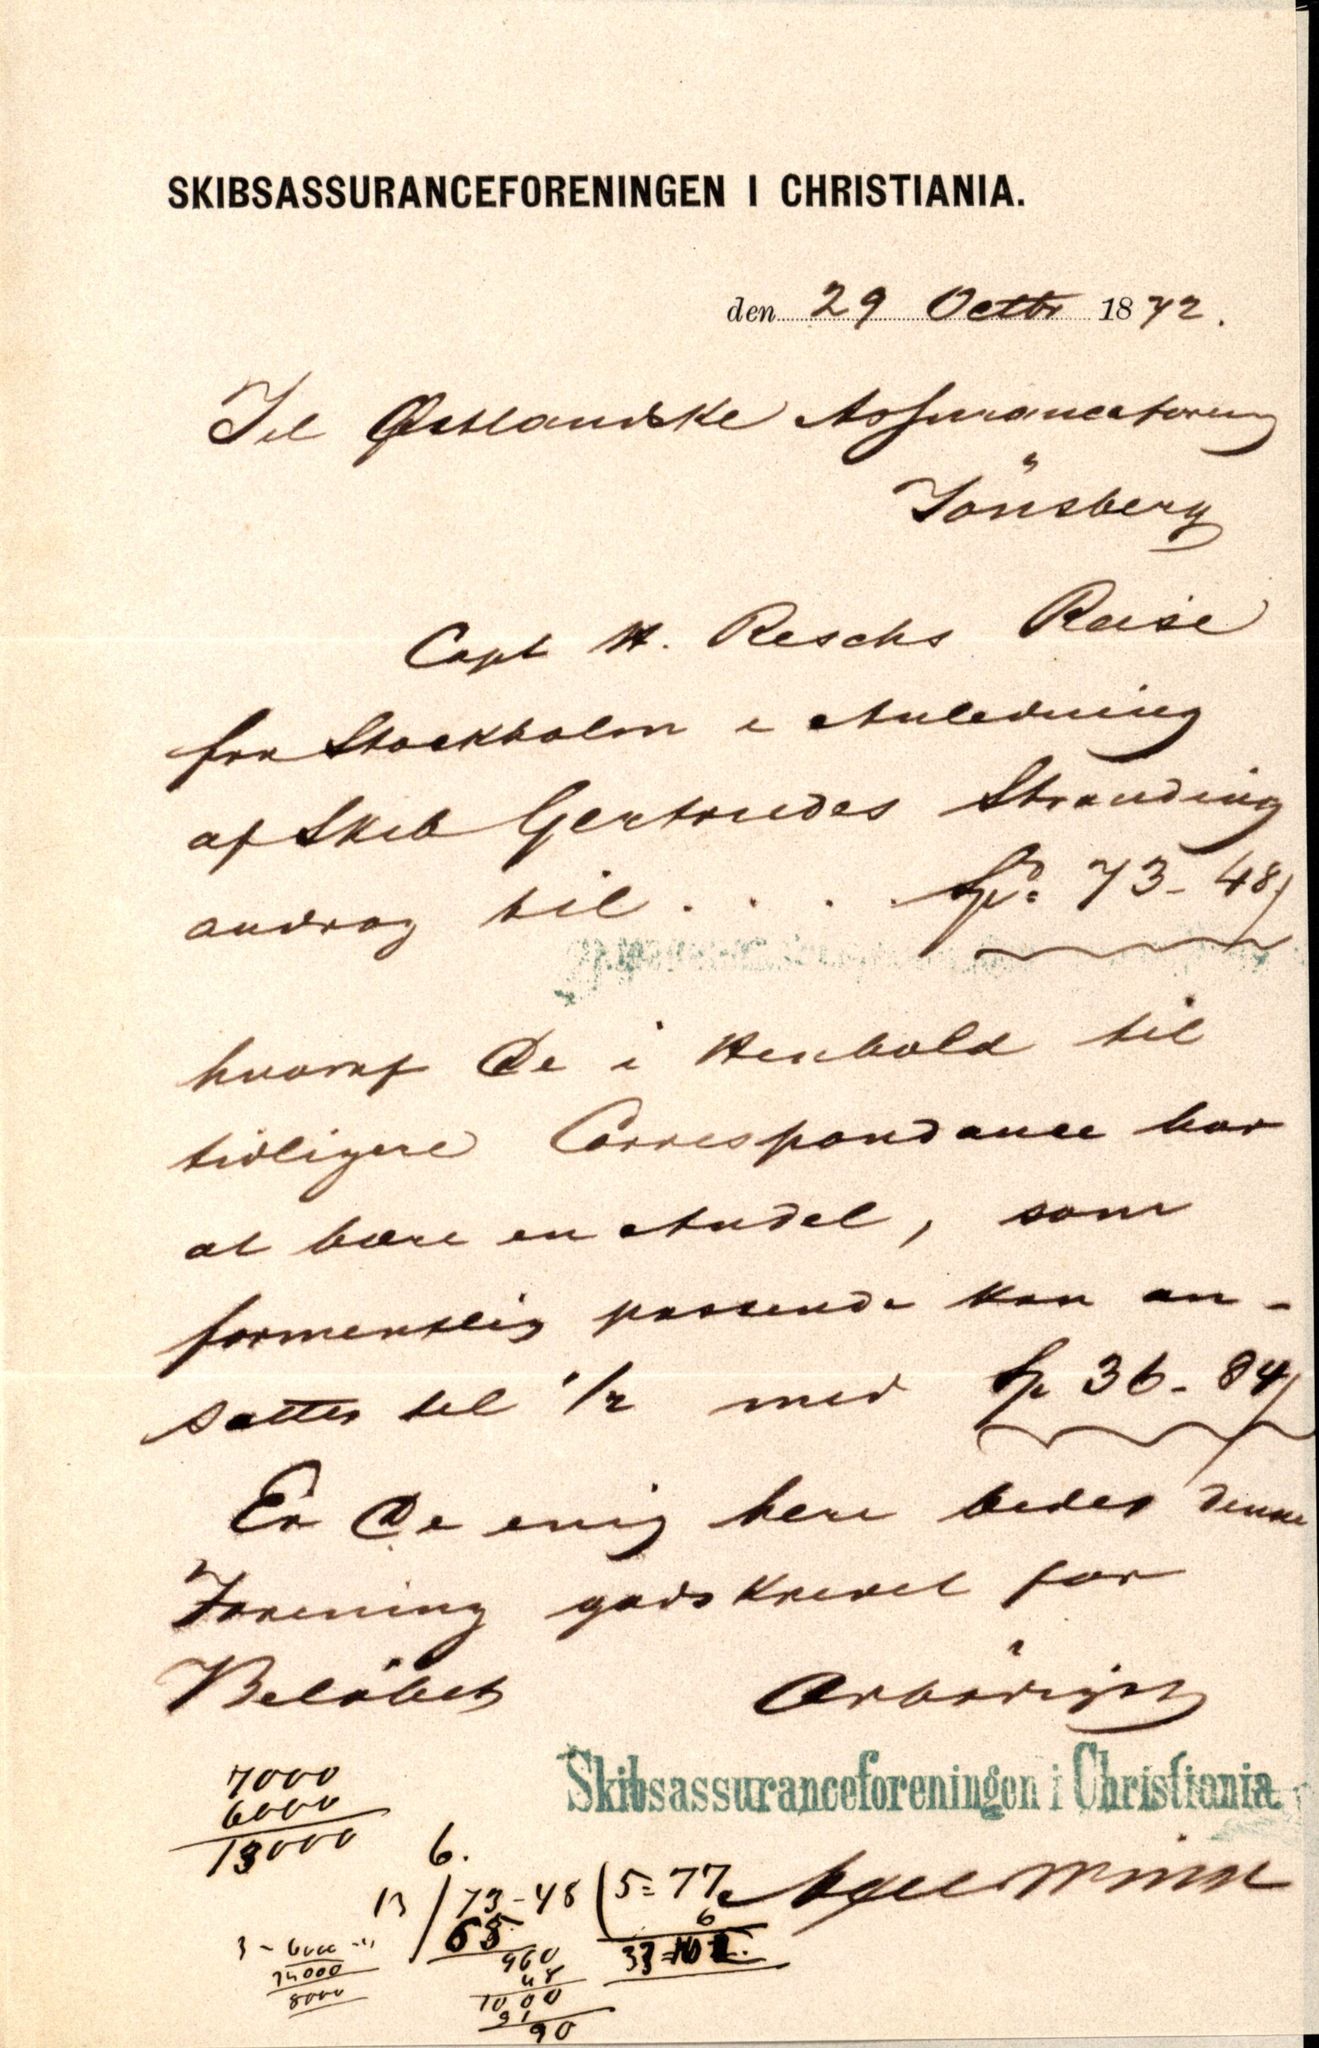 SKIBSASSURANCEFORENINGEN I CHRISTIANIA.
den 29 Octbr 1872.
Til Østlandske Assuranceforening
Tönsberg
Capt H. Reschs Reise
fra Stockholm i Anledning
af Skib Gertrudes Stranding
androg til . . . . Spd: 73-48/
hvoraf De i Henhold til
tidligere Correspondance har
at bære en Andel, som
formentlig passende kan an-
sættes til 1/2 med Sp 36-84/
Er De enig heri bedes denne
Forening godskrevet for
Belöbet Ærbödigst
Skibsassuranceforeningen i Christiania
7000
6000
13000
6.
13 / 73-48 ( 5=77
65 6
960 33=102.
48
1000
91
90
3 - 6000
14000
8000